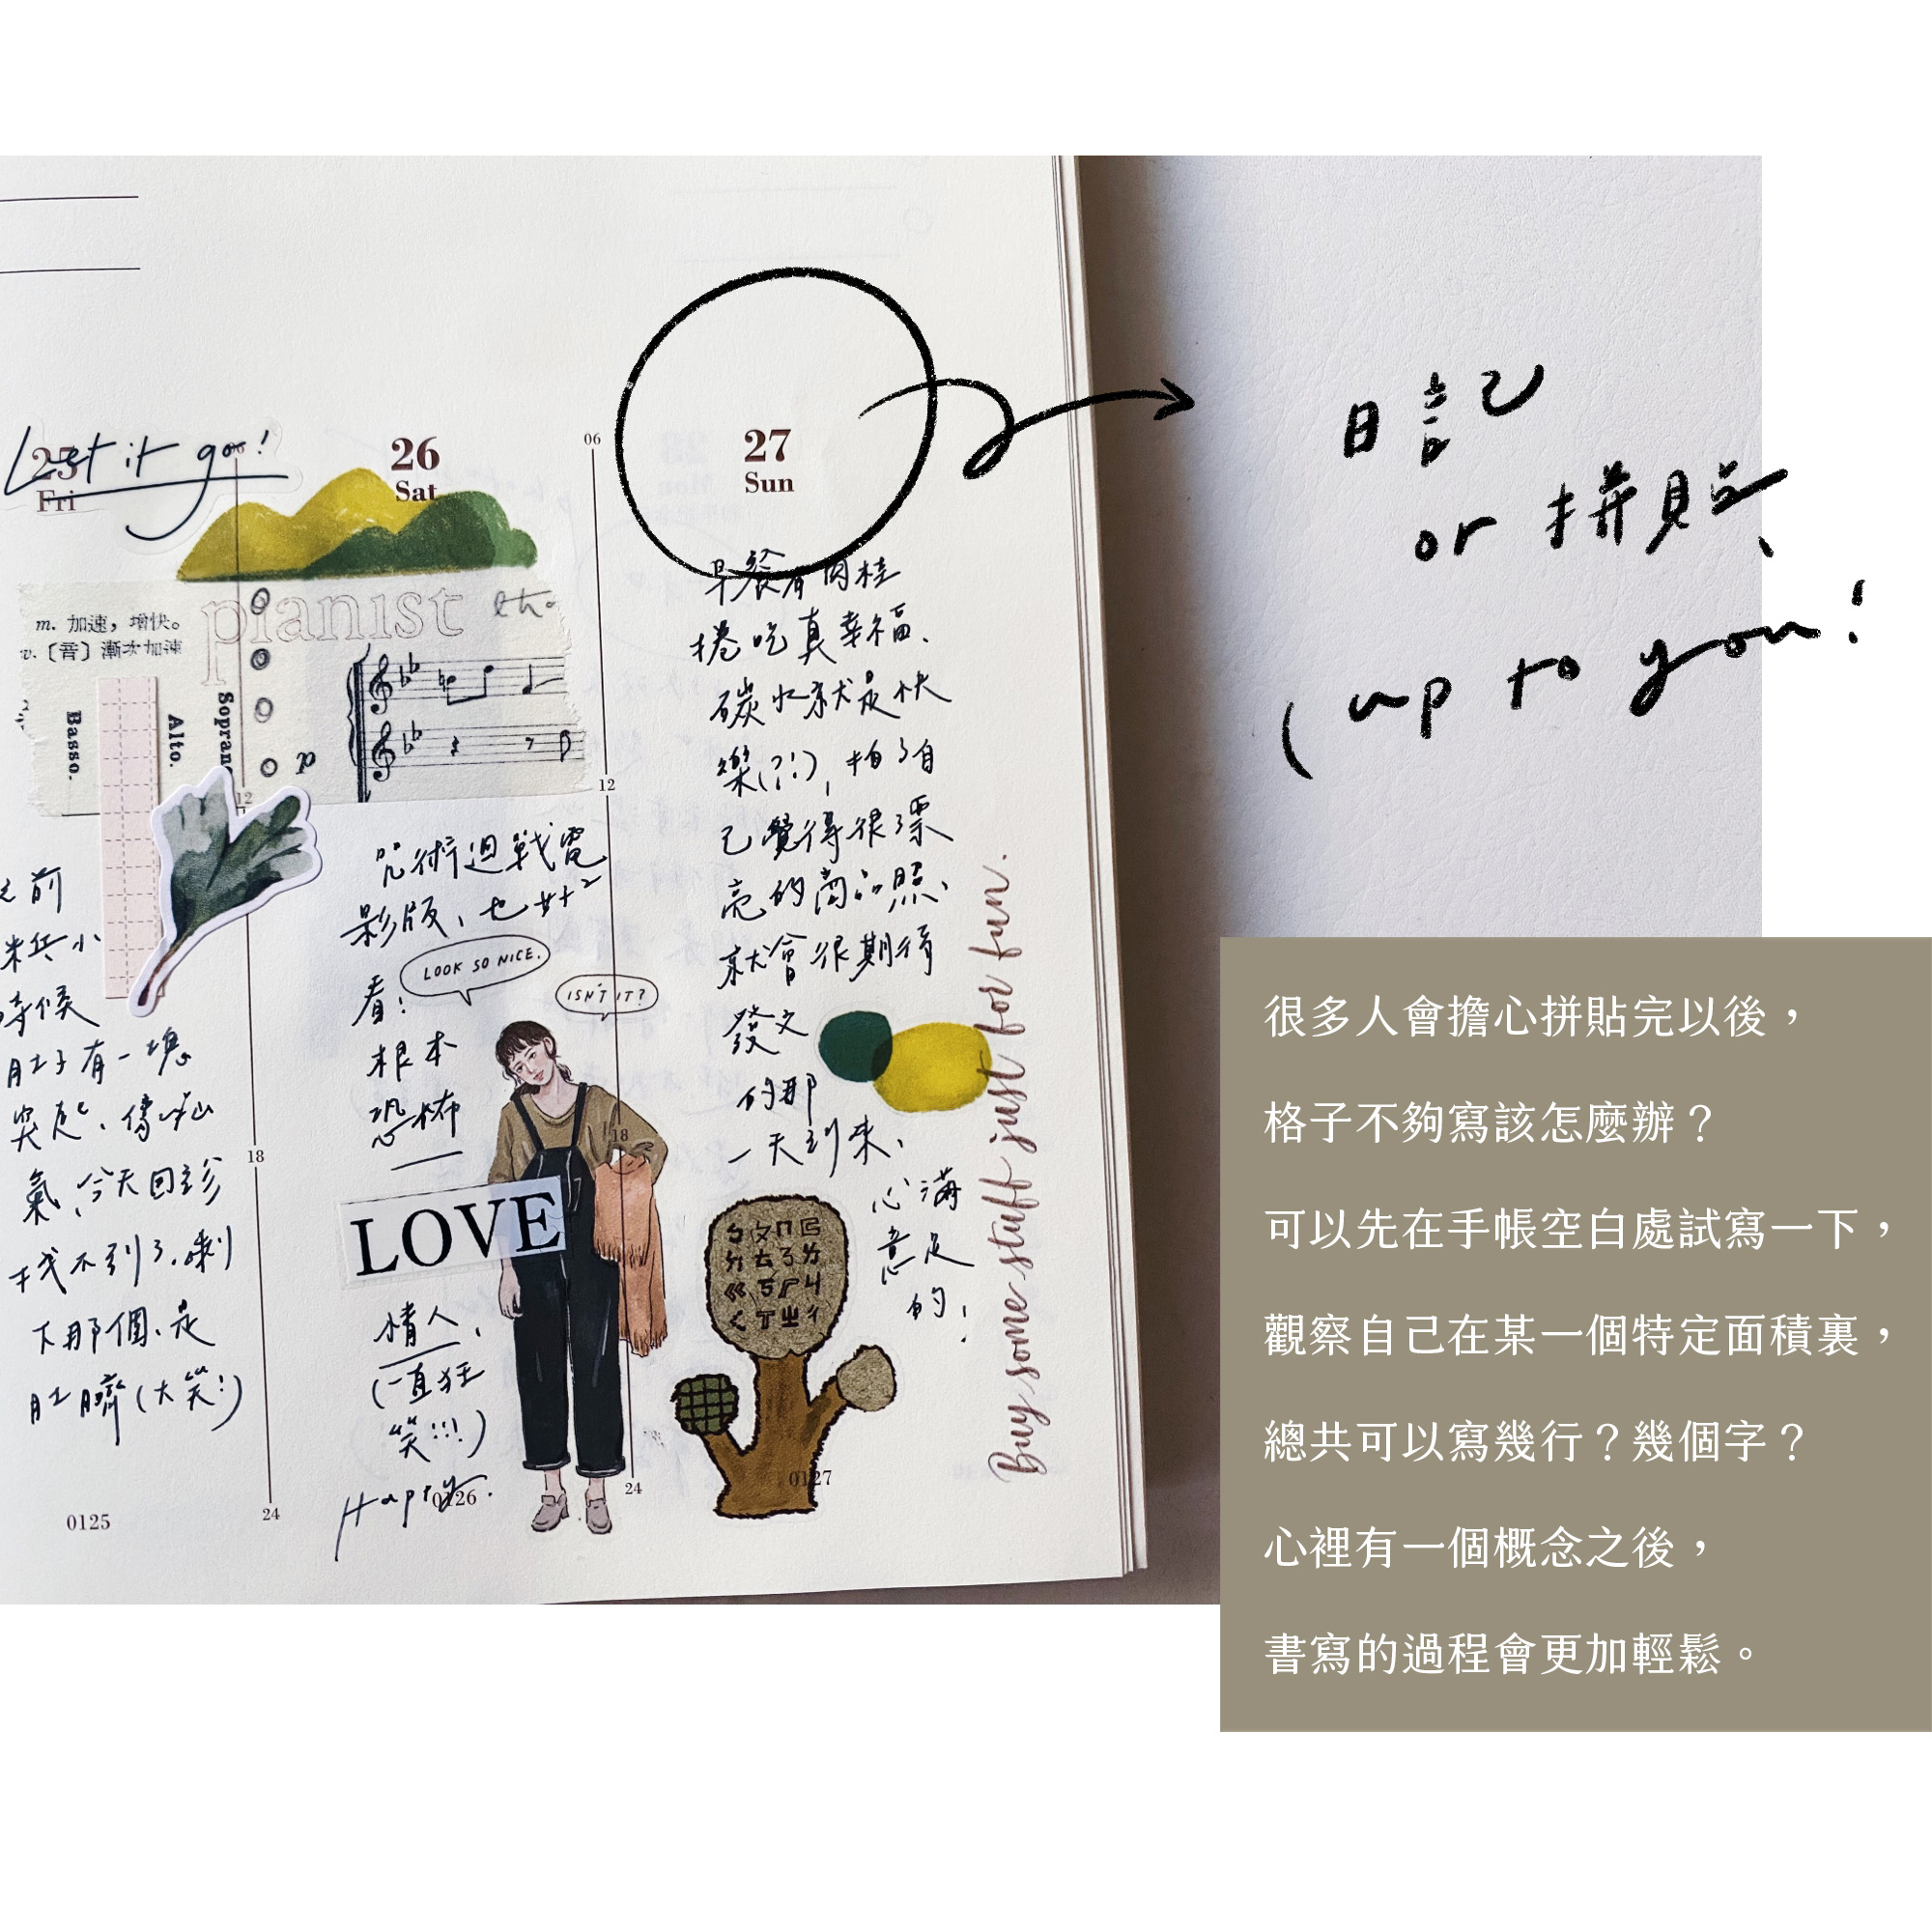 Let it go!
25
Fri
06
m. 加速，增快。
v.〔音〕漸次加速
Basso.
Alto.
Soprano
12
之前
米兵小
時候
肚子有一塊
突起、像疝
氣、今天回診
找不到了,剩
下那個、是
肚臍(大笑!)
18
24
0125
26
Sat
pianist
06
12
咒術迴戰電
影版、也太²
看!
LOOK SO NICE.
ISN'T IT?
根本
恐怖
LOVE
情人、
(一直狂
笑!!!)
Happy.
18
24
0126
27
Sun
早餐有肉桂
捲吃真幸福、
碳水就是快
樂(?!), 拍了自
己覺得很漂
亮的商品照、
就會很期待
發文
的那
一天到來、
心滿
意足
的!
ㄅㄆㄇㄈ
ㄉㄊㄋㄌ
ㄍㄎㄏㄐ
ㄑㄒㄓㄔ
0127
Buy some stuff just for fun.
日記
or 拼貼、
(up to you!
很多人會擔心拼貼完以後，
格子不夠寫該怎麼辦？
可以先在手帳空白處試寫一下，
觀察自己在某一個特定面積裏，
總共可以寫幾行？幾個字？
心裡有一個概念之後，
書寫的過程會更加輕鬆。